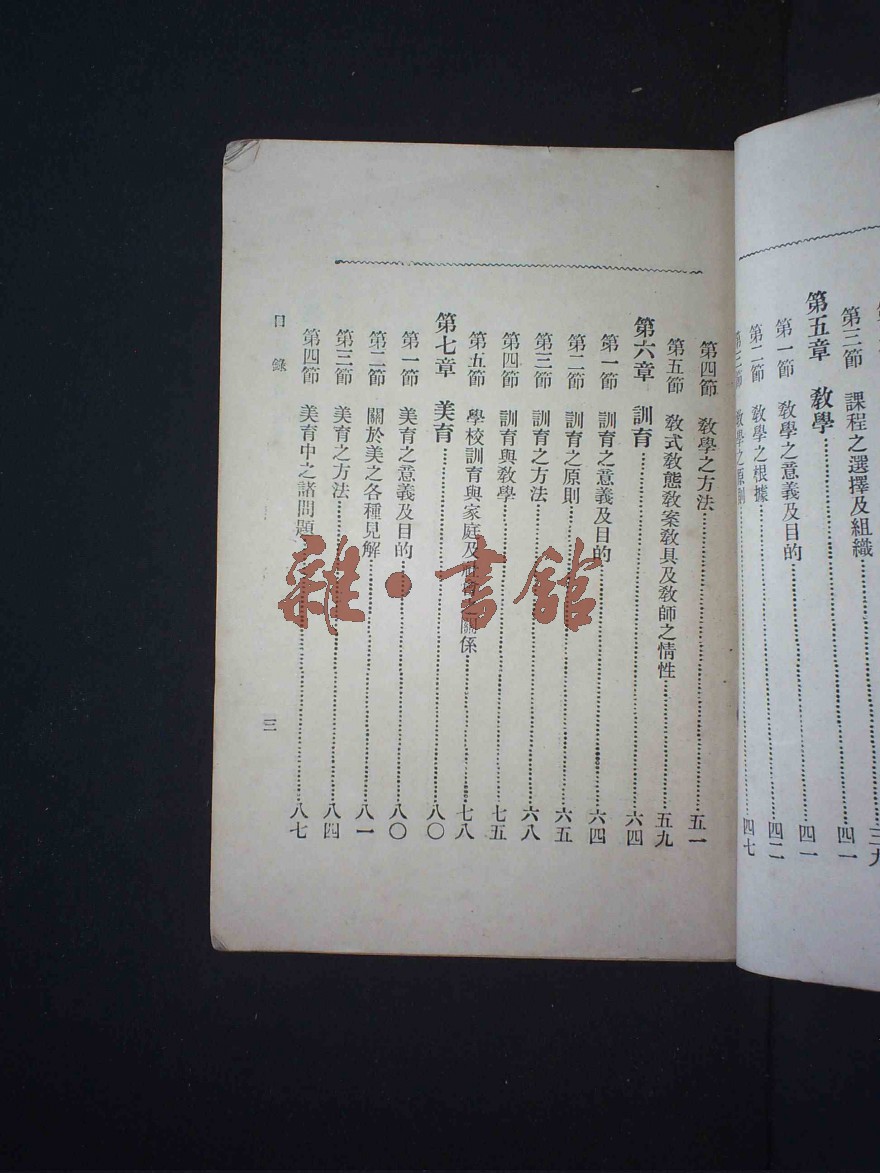 第三節 課程之選擇及組織……三九
第五章 教學……四一
第一節 教學之意義及目的……四一
第二節 教學之根據……四二
第三節 教學之原則……四七
第四節 教學之方法……五一
第五節 教式教態教案教具及教師之情性……五九
第六章 訓育……六四
第一節 訓育之意義及目的……六四
第二節 訓育之原則……六五
第三節 訓育之方法……六八
第四節 訓育與教學……七五
第五節 學校訓育與家庭及社會之關係……七八
第七章 美育……八〇
第一節 美育之意義及目的……八〇
第二節 關於美之各種見解……八一
第三節 美育之方法……八四
第四節 美育中之諸問題……八七
目錄 三
雜·書館